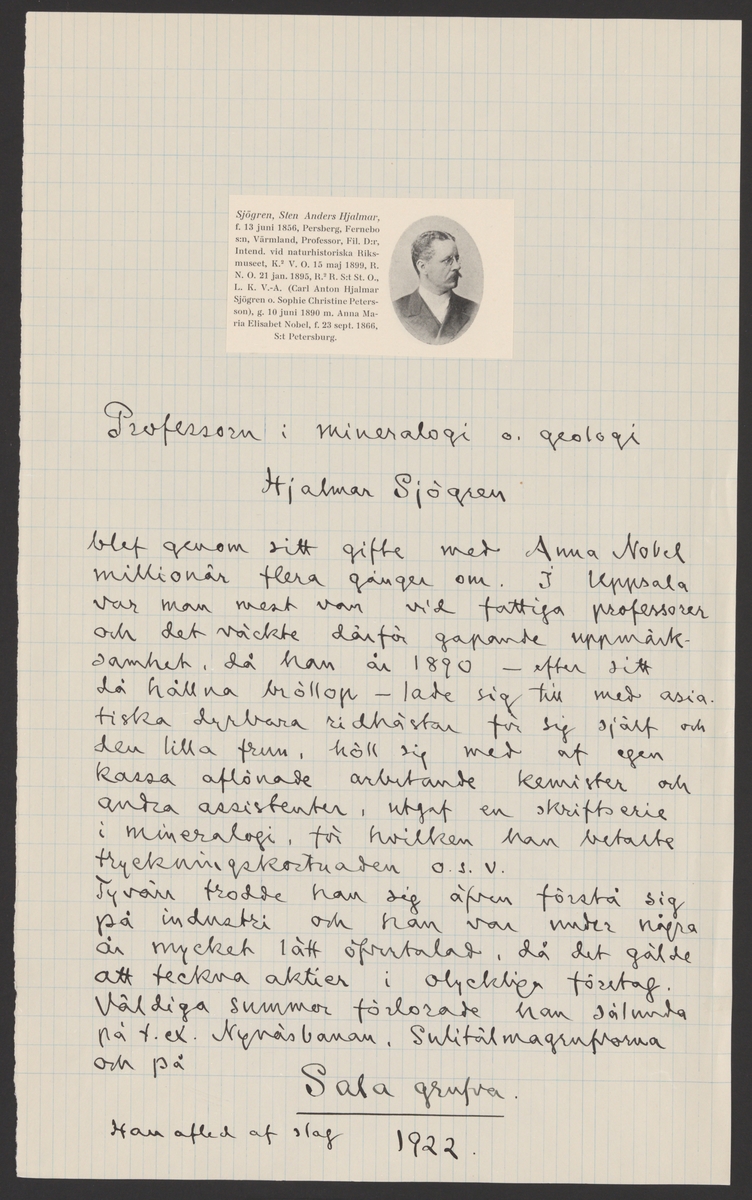 Sjögren, Sten Anders Hjalmar,
f. 13 juni 1856, Persberg, Fernebo
s:n, Värmland, Professor, Fil. D:r,
Intend. vid naturhistoriska Riks-
museet, K.² V. O. 15 maj 1899, R.
N. O. 21 jan. 1895, R.² R. S:t St. O.,
L. K. V.-A. (Carl Anton Hjalmar
Sjögren o. Sophie Christine Peters-
son), g. 10 juni 1890 m. Anna Ma-
ria Elisabet Nobel, f. 23 sept. 1866,
S:t Petersburg.
Professorn i mineralogi o. geologi
Hjalmar Sjögren
blef genom sitt gifte med Anna Nobel
millionär flera gånger om. I Uppsala
var man mest van vid fattiga professorer
och det väckte därför gapande uppmärk-
samhet, då han år 1890 – efter sitt
då hållna bröllop – lade sig till med asia-
tiska dyrbara ridhästar för sig själf och
den lilla frun, höll sig med af egen
kassa aflönade arbetande kemister och
andra assistenter, utgaf en skriftserie
i mineralogi, för hvilken han betalte
tryckningskostnaden o.s.v.
Tyvärr trodde han sig äfven förstå sig
på industri och han var under några
år mycket lätt öfvertalad, då det gälde
att teckna aktier i olyckliga företag.
Väldiga summor förlorade han sålunda
på t.ex. Nynäsbanan, Sulitälmagrufvorna
och på
Sala grufva.
Han afled af slag 1922.